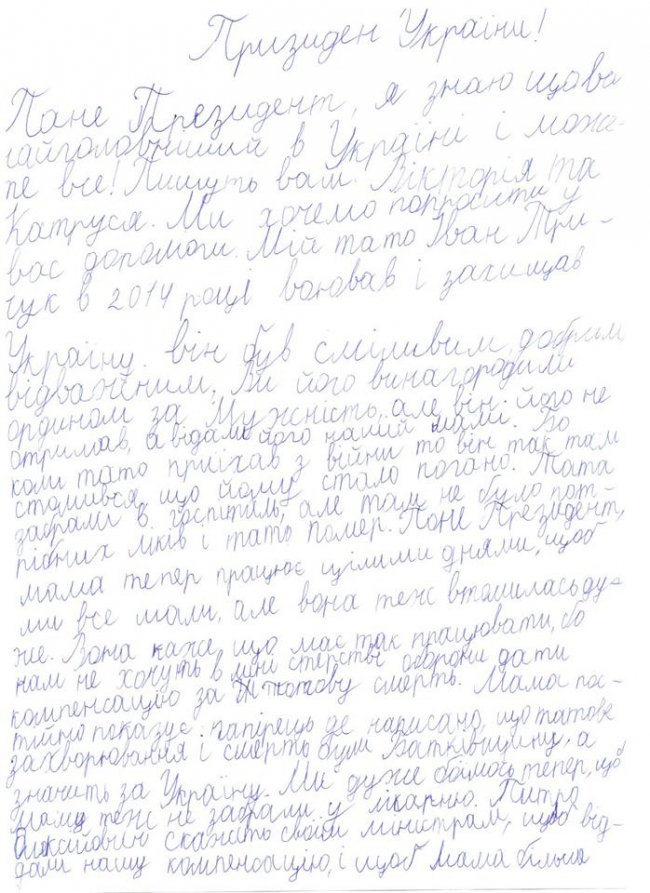 Призиден України!
Пане Президент, я знаю що ви
найголовніший в Україні і може-
те все! Пишуть вам Вікторія та
Катруся. Ми хочемо попросити у
вас допомоги. Мій тато Іван Три-
чук в 2014 році воював і захищав
Україну. він був смiливим, добрим
відважним. Ви його винагородили
ордином за Мужність, але він його не
отримав, а відали його нашій мамі. Бо
коли тато приїхав з війни то він так там
стомився, що йому стало погано. Тата
забрали в госпіталь, але там не було пот-
рібних ліків і тато помер. Пане Президент,
мама тепер працює цілими днями, щоб
ми все мали, але вона теж втомилась ду-
же. Вона каже що має так працювати, бо
нам не хочуть в міні стерстві оборони дати
компенсацію за татову смерть. Мама пос-
тійно показує папірець де написано, що татове
захворювання і смерть були Батківщину, а
значить за Україну. Ми дуже боїмось тепер, щоб
маму теж не забрали у лікарню. Питро
Олексійович скажіть своїм міністрам, щоб від-
дали нашу компенсацію, і щоб мама більше